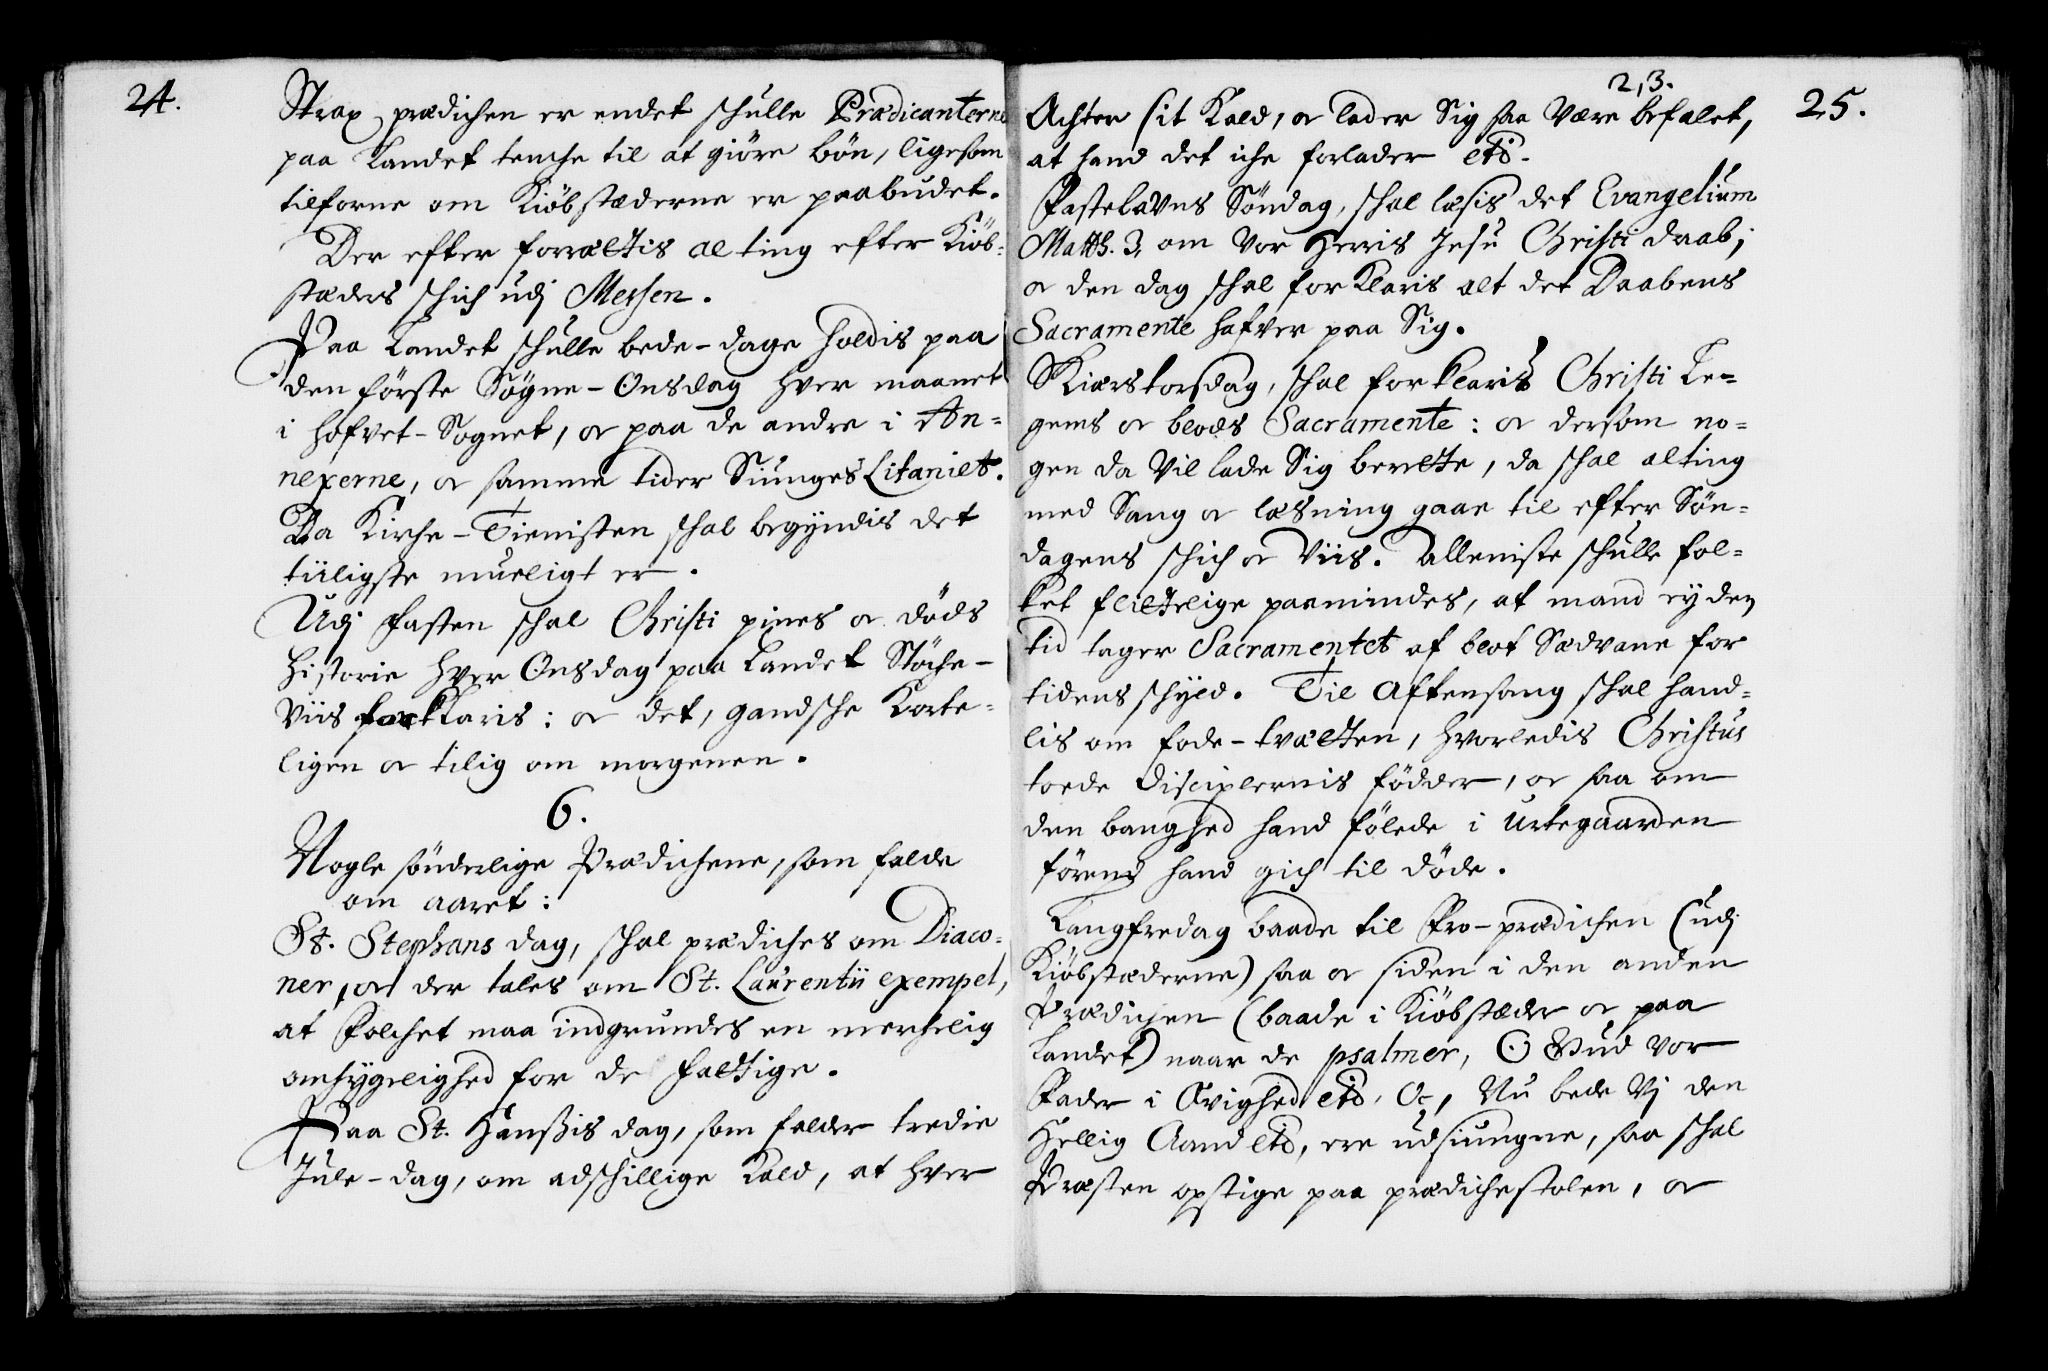 24.
Strax prædichen er endet schulle Prædicanterne
paa Landet tenche til at giöre bön, ligesom
tilforne om Kiöbstæderne er paabudet.
Der efter forrættis alting efter Kiöb-
stæders schich udj Messen.
Paa Landet schulle bede-dage holdis paa
den förste Søgne-Onsdag hver maanet
i hofvet-Sognet, oc paa de andre i An-
nexerne, oc samme tider Siunges Litaniet.
Da Kirche-Tienisten schal begyndis det
tiiligste mueligt er.
Udj fasten schal Christi pines oc döds
historie hver Onsdag paa Landet Støche-
viis forklaris: oc det, gandsche korte-
ligen oc tilig om morgenen.
6.
Nogle sönderlige Prædichene, som falde
om aaret:
St. Stephans dag, schal prædiches om Diaco-
ner, oc der tales om St. Laurentii exempel,
at Folchet maa indgrundes en merchelig
omhygelighed for de fattige.
Paa St. Hanssis dag, som falder tredie
Jule-dag, om adschillige Kald, at hver
2,3.
25.
Achter sit Kald, oc lader Sig saa være befalet,
at hand det iche forlader etc.
Fastelavns Söndag, schal læsis det Evangelium
Matth. 3, om vor Herris Jesu Christi daab,
oc den dag schal forklaris alt det Daabens
Sacramente hafver paa Sig.
Skiærstorsdag, schal forklaris Christi Le-
gems oc blods Sacramente: oc dersom no-
gen da vil lade Sig berette, da schal alting
med Sang oc læsning gaae til efter Sön-
dagens schich oc viis. Alleniste schulle fol-
ket flittelige paamindes, at mand ey den
tid tager Sacramentet af blot Sædvane for
tidens schyld. Til Aftensang schal hand-
lis om fode-tvætten, hvorledis Christus
toede Disciplernis födder, oc saa om
den banghed hand fölede i urtegaarden
förend hand gich til döde.
Langfredag baade til Fro-prædichen (udj
Kiöbstæderne) saa oc siden i den anden
Prædichen (baade i Kiöbstæder oc paa
Landet) naar de psalmer, O Gud vor
Fader i Evighed etc. Oc, Nu bede Vj den
Hellig Aand etc, ere udsiungne, saa schal
Præsten opstige paa prædichestolen, oc